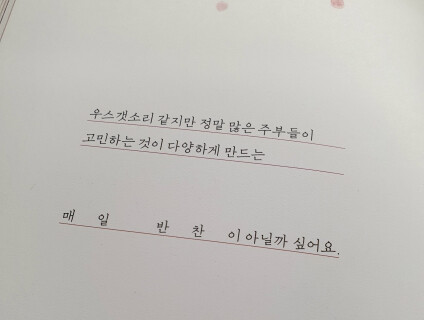 우스갯소리 같지만 정말 많은 주부들이
고민하는 것이 다양하게 만드는
매 일 반 찬 이 아닐까 싶어요.